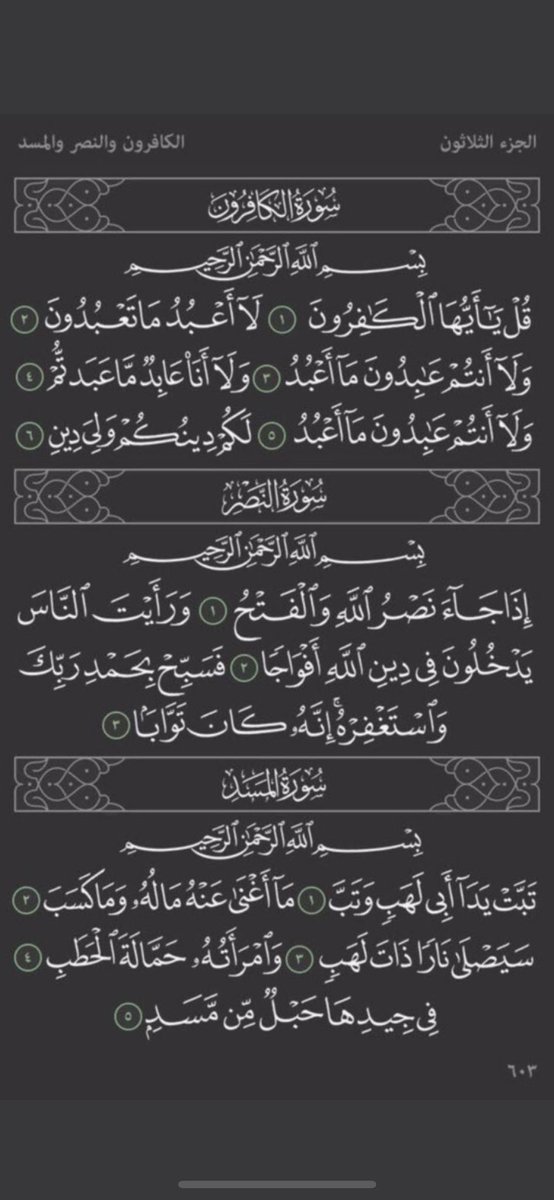 الجزء الثلاثون
الكافرون والنصر والمسد
سُورَةُ الكَافِرُونَ
بِسْمِ ٱللَّهِ ٱلرَّحْمَٰنِ ٱلرَّحِيمِ
قُلْ يَٰٓأَيُّهَا ٱلْكَٰفِرُونَ ١ لَآ أَعْبُدُ مَا تَعْبُدُونَ ٢
وَلَآ أَنتُمْ عَٰبِدُونَ مَآ أَعْبُدُ ٣ وَلَآ أَنَا۠ عَابِدٌ مَّا عَبَدتُّمْ ٤
وَلَآ أَنتُمْ عَٰبِدُونَ مَآ أَعْبُدُ ٥ لَكُمْ دِينُكُمْ وَلِىَ دِينِ ٦
سُورَةُ النَّصْرِ
بِسْمِ ٱللَّهِ ٱلرَّحْمَٰنِ ٱلرَّحِيمِ
إِذَا جَآءَ نَصْرُ ٱللَّهِ وَٱلْفَتْحُ ١ وَرَأَيْتَ ٱلنَّاسَ
يَدْخُلُونَ فِى دِينِ ٱللَّهِ أَفْوَاجًا ٢ فَسَبِّحْ بِحَمْدِ رَبِّكَ
وَٱسْتَغْفِرْهُ ۚ إِنَّهُۥ كَانَ تَوَّابًۢا ٣
سُورَةُ المَسَدِ
بِسْمِ ٱللَّهِ ٱلرَّحْمَٰنِ ٱلرَّحِيمِ
تَبَّتْ يَدَآ أَبِى لَهَبٍ وَتَبَّ ١ مَآ أَغْنَىٰ عَنْهُ مَالُهُۥ وَمَا كَسَبَ ٢
سَيَصْلَىٰ نَارًا ذَاتَ لَهَبٍ ٣ وَٱمْرَأَتُهُۥ حَمَّالَةَ ٱلْحَطَبِ ٤
فِى جِيدِهَا حَبْلٌ مِّن مَّسَدٍۭ ٥
٦٠٣